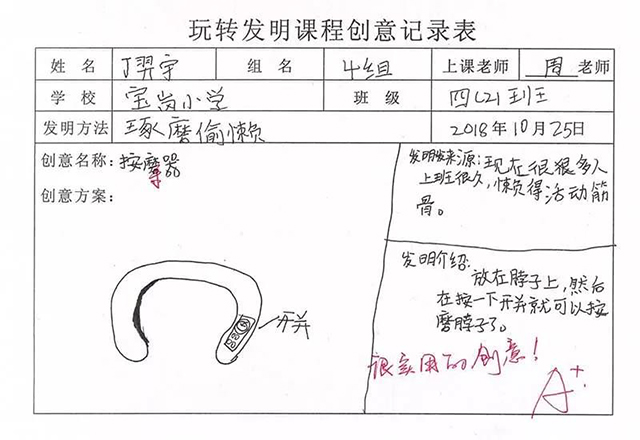 玩转发明课程创意记录表
姓 名 丁羿宇 组 名 4组 上课老师 周 老师
学 校 宝岗小学 班 级 四(2)班
发明方法 琢磨偷懒 2018年10月25日
创意名称：按摩器
创意方案：
开并
发明来源：现在很狠多人
上班很久，懒得活动筋
骨。
发明介绍：
放在脖子上，然后
在按一下开并就可以按
磨脖子了。
很实用的创意！
A+